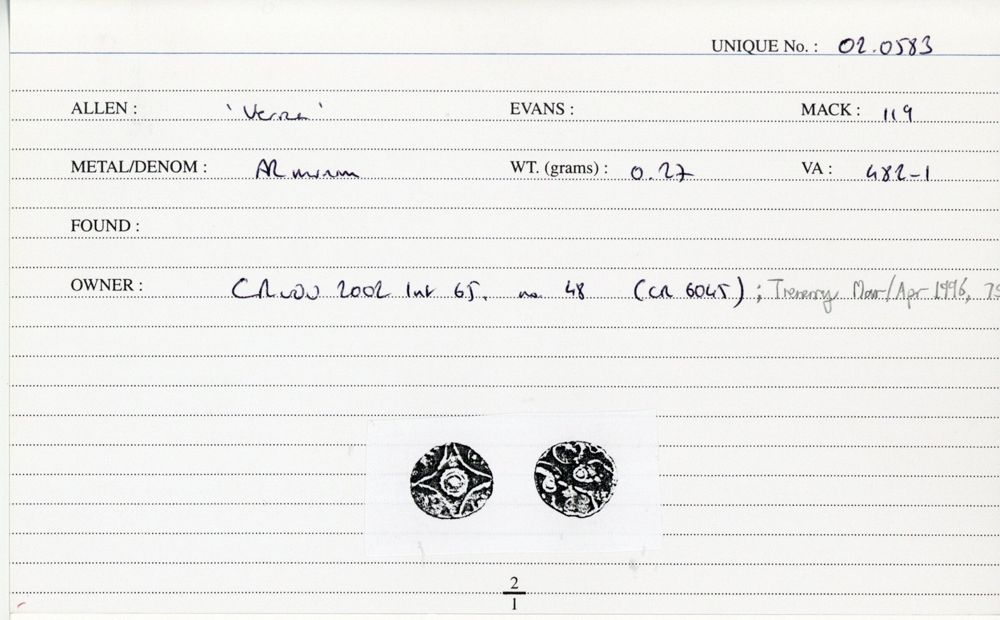 UNIQUE No. : 02.0583
ALLEN : 'Verica' EVANS : MACK : 119
METAL/DENOM : AR minim WT. (grams) : 0.27 VA : 482-1
FOUND :
OWNER : 2002 65. no. 48 (CR 6045) ; Mar/Apr 1996,
2
1